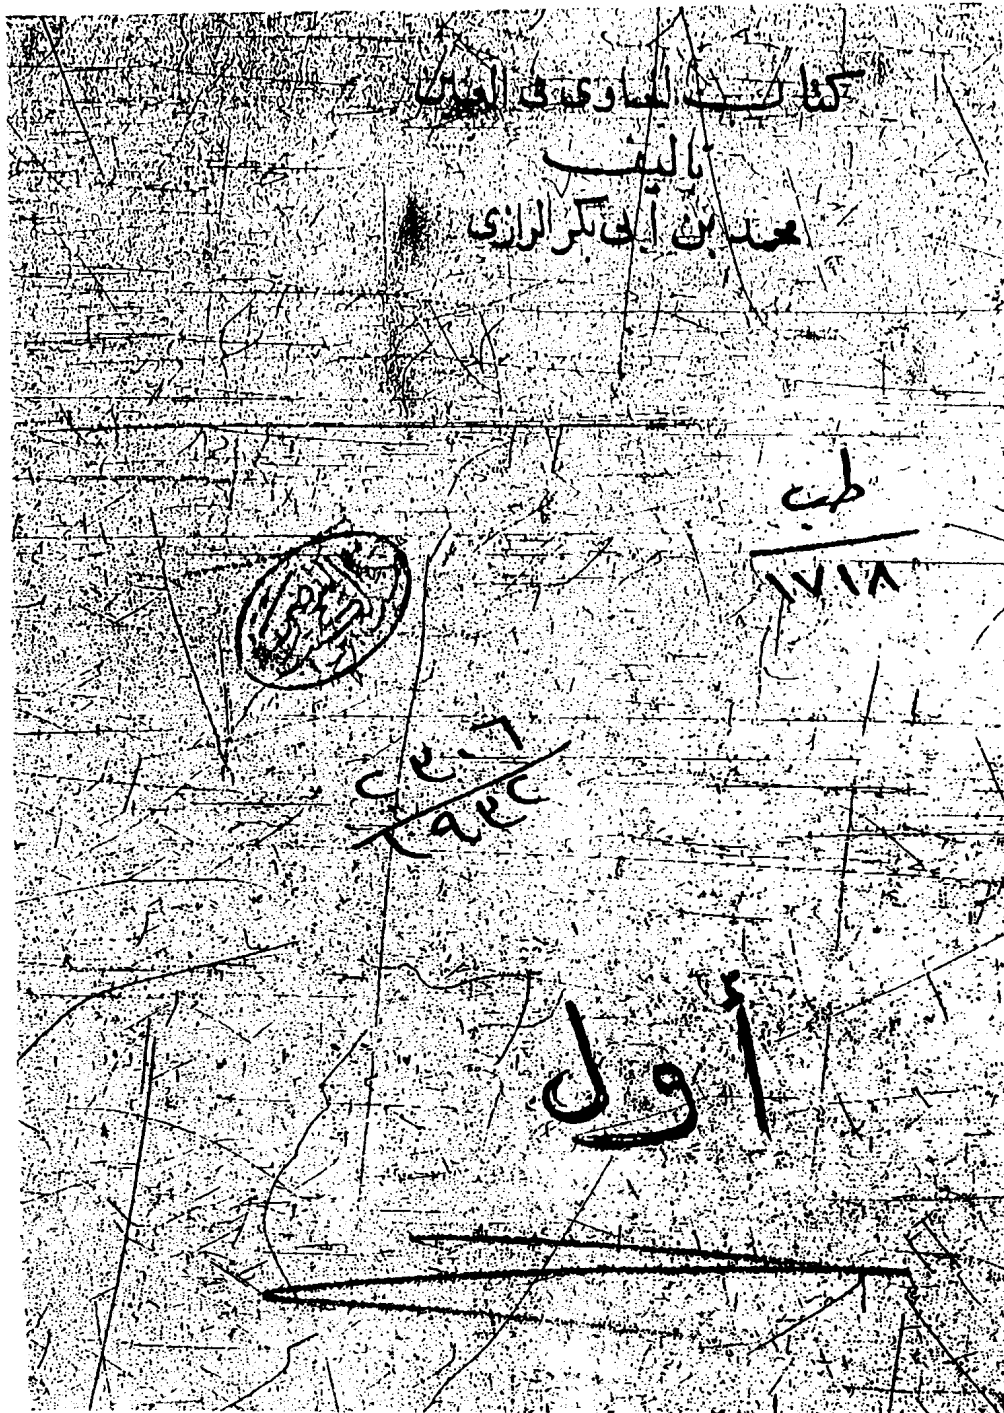 كتاب الحاوى فى الطب
تاليف
محمد بن أبى بكر الرازى
طب
١٧١٨
٢٣٠٦
٢٩٣٢
أول